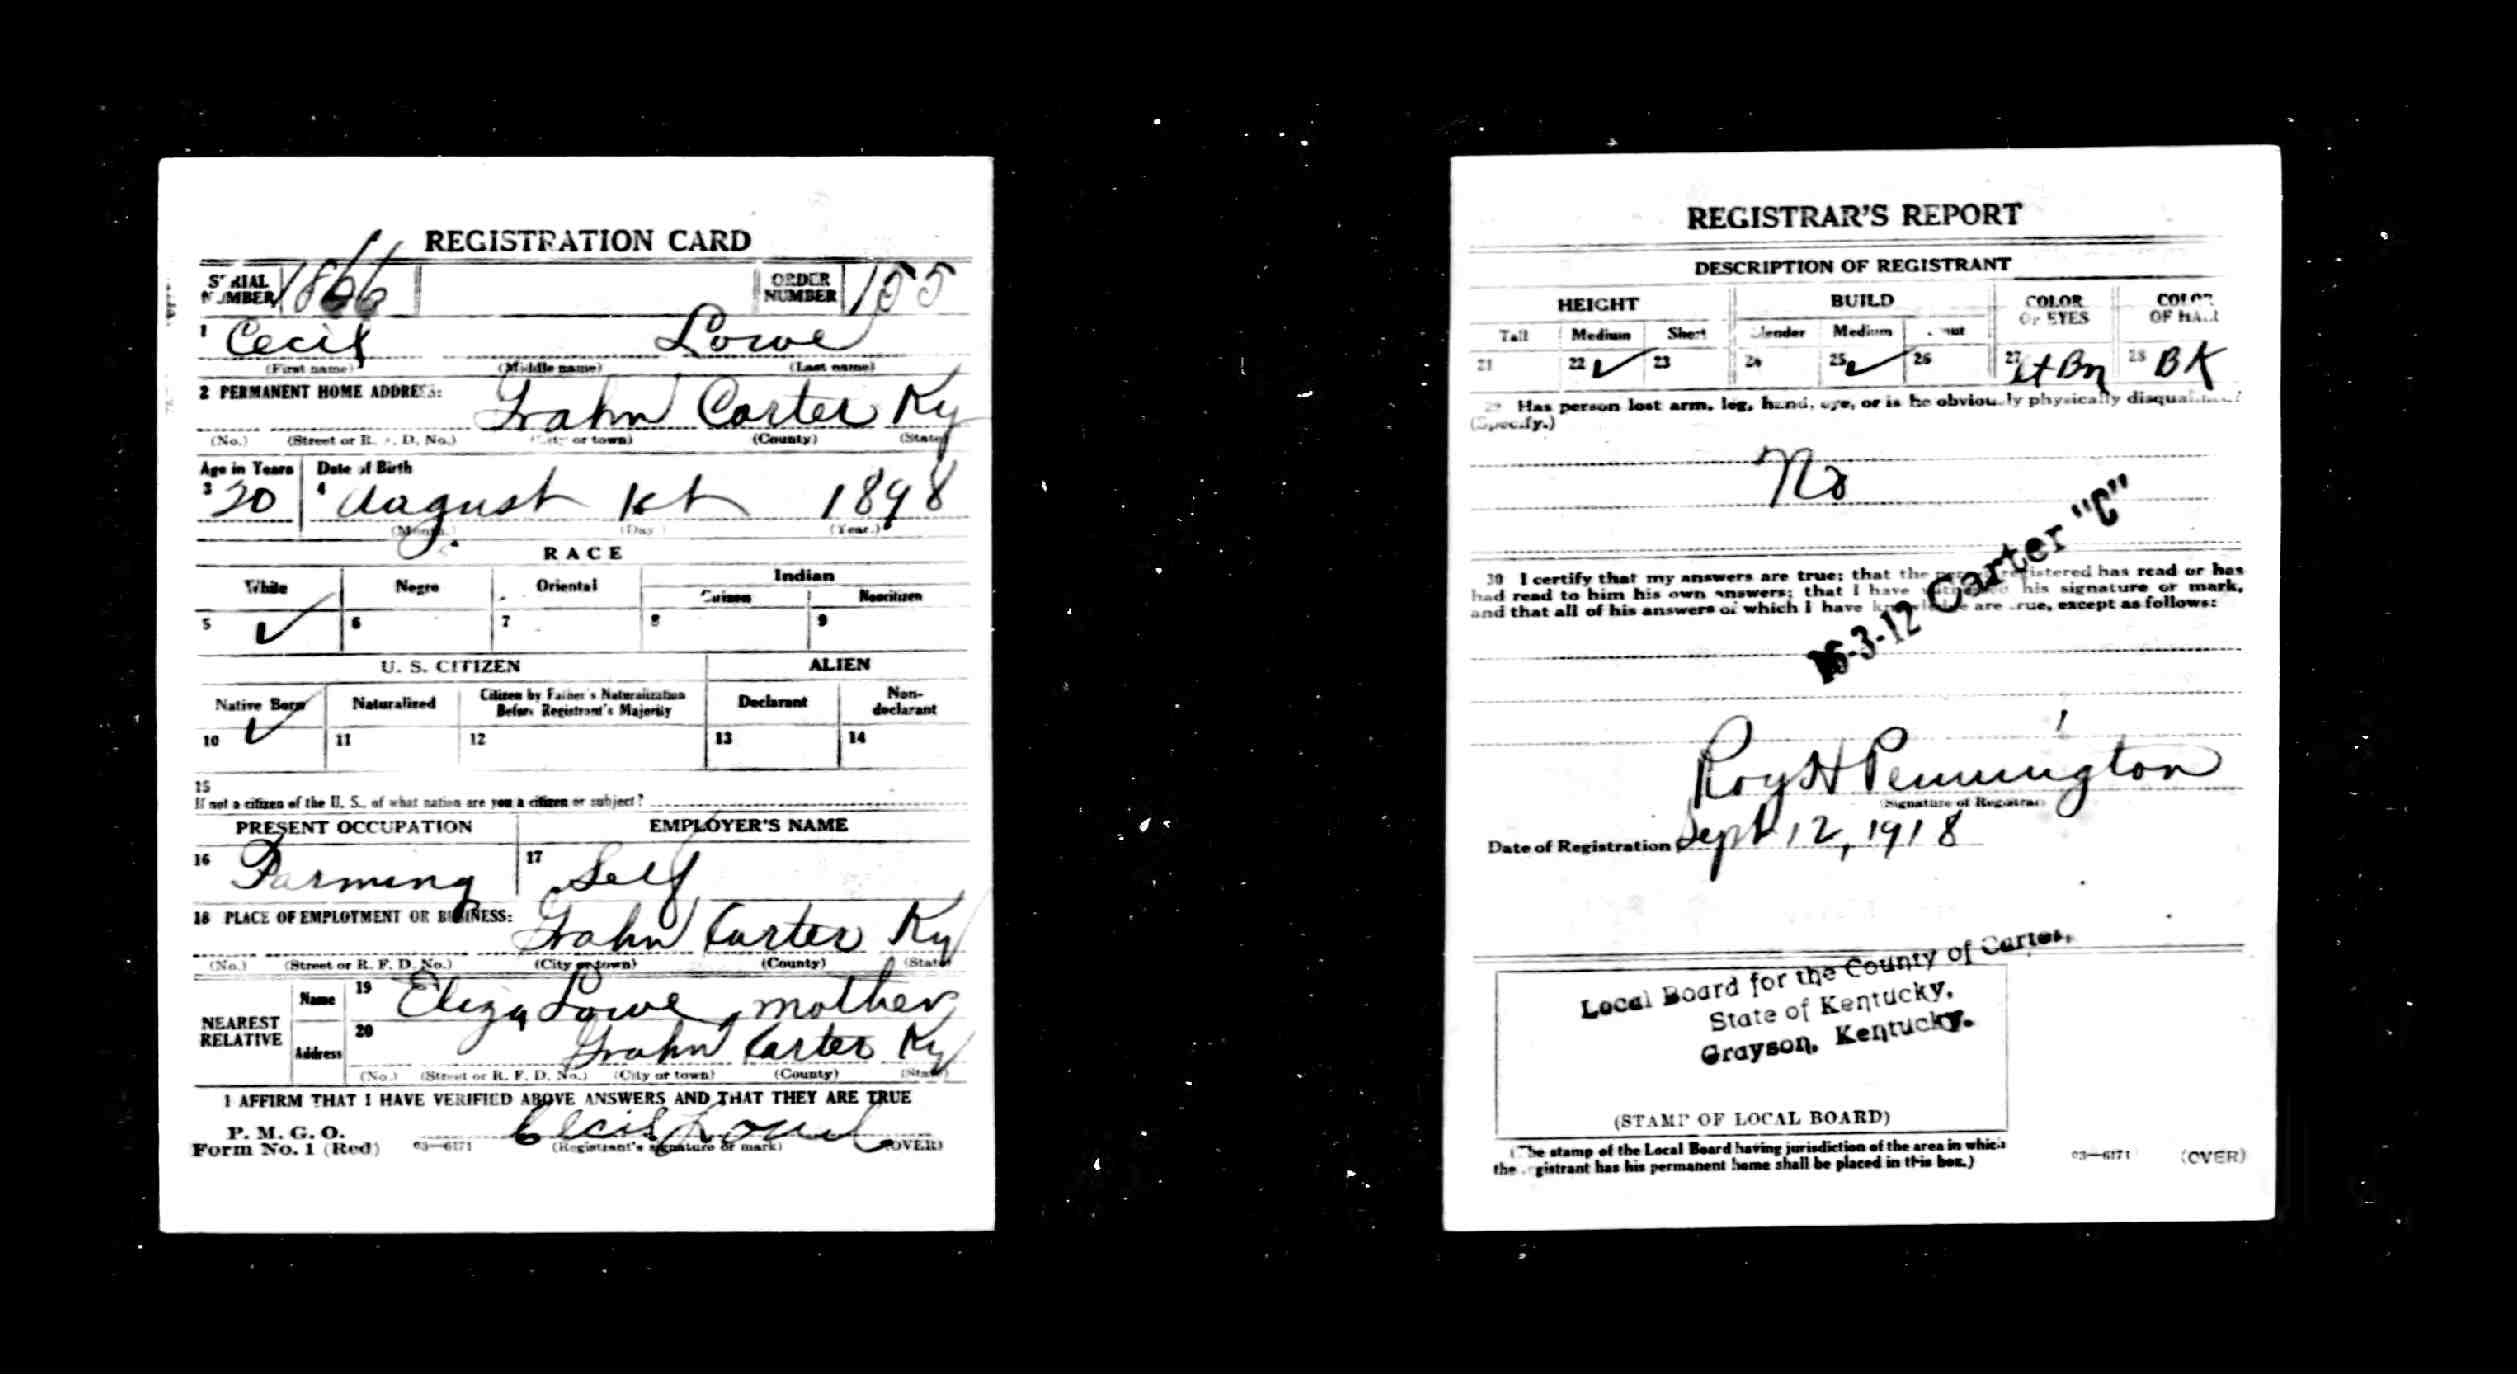 REGISTRATION CARD
SERIAL NUMBER 1866 ORDER NUMBER 155
1 Cecil Lowe
(First name) (Middle name) (Last name)
2 PERMANENT HOME ADDRESS: Grahn Carter Ky
(No.) (Street or R. F. D. No.) (City or town) (County) (State)
Age in Years Date of Birth
3 20 4 August 1st 1898
(Month.) (Day.) (Year.)
RACE
White Negro Oriental Indian
Citizen Noncitizen
5 ✓ 6 7 8 9
U. S. CITIZEN ALIEN
Native Born Naturalized Citizen by Father's Naturalization Before Registrant's Majority Declarant Non-declarant
10 ✓ 11 12 13 14
15
If not a citizen of the U. S., of what nation are you a citizen or subject?
PRESENT OCCUPATION EMPLOYER'S NAME
16 Farming 17 Self
18 PLACE OF EMPLOYMENT OR BUSINESS: Grahn Carter Ky
(No.) (Street or R. F. D. No.) (City or town) (County) (State)
NEAREST RELATIVE Name 19 Eliza Lowe, mother
Address 20 Grahn Carter Ky
(No.) (Street or R. F. D. No.) (City or town) (County) (State)
I AFFIRM THAT I HAVE VERIFIED ABOVE ANSWERS AND THAT THEY ARE TRUE
P. M. G. O.
Form No. 1 (Red) 03—6171 Cecil Lowe (Registrant's signature or mark) (OVER)
REGISTRAR'S REPORT
DESCRIPTION OF REGISTRANT
HEIGHT BUILD COLOR OF EYES COLOR OF HAIR
Tall Medium Short Slender Medium Stout
21 22 ✓ 23 24 25 ✓ 26 27 Lt Bn 28 BK
29 Has person lost arm, leg, hand, eye, or is he obviously physically disqualified?
(Specify.)
No
30 I certify that my answers are true; that the person registered has read or has
had read to him his own answers; that I have witnessed his signature or mark,
and that all of his answers of which I have knowledge are true, except as follows:
16-3-12 Carter "C"
Roy H Pennington
(Signature of Registrar)
Date of Registration Sept 12, 1918
Local Board for the County of Carter,
State of Kentucky,
Grayson, Kentucky.
(STAMP OF LOCAL BOARD)
(The stamp of the Local Board having jurisdiction of the area in which
the registrant has his permanent home shall be placed in this box.)
03—6171 (OVER)